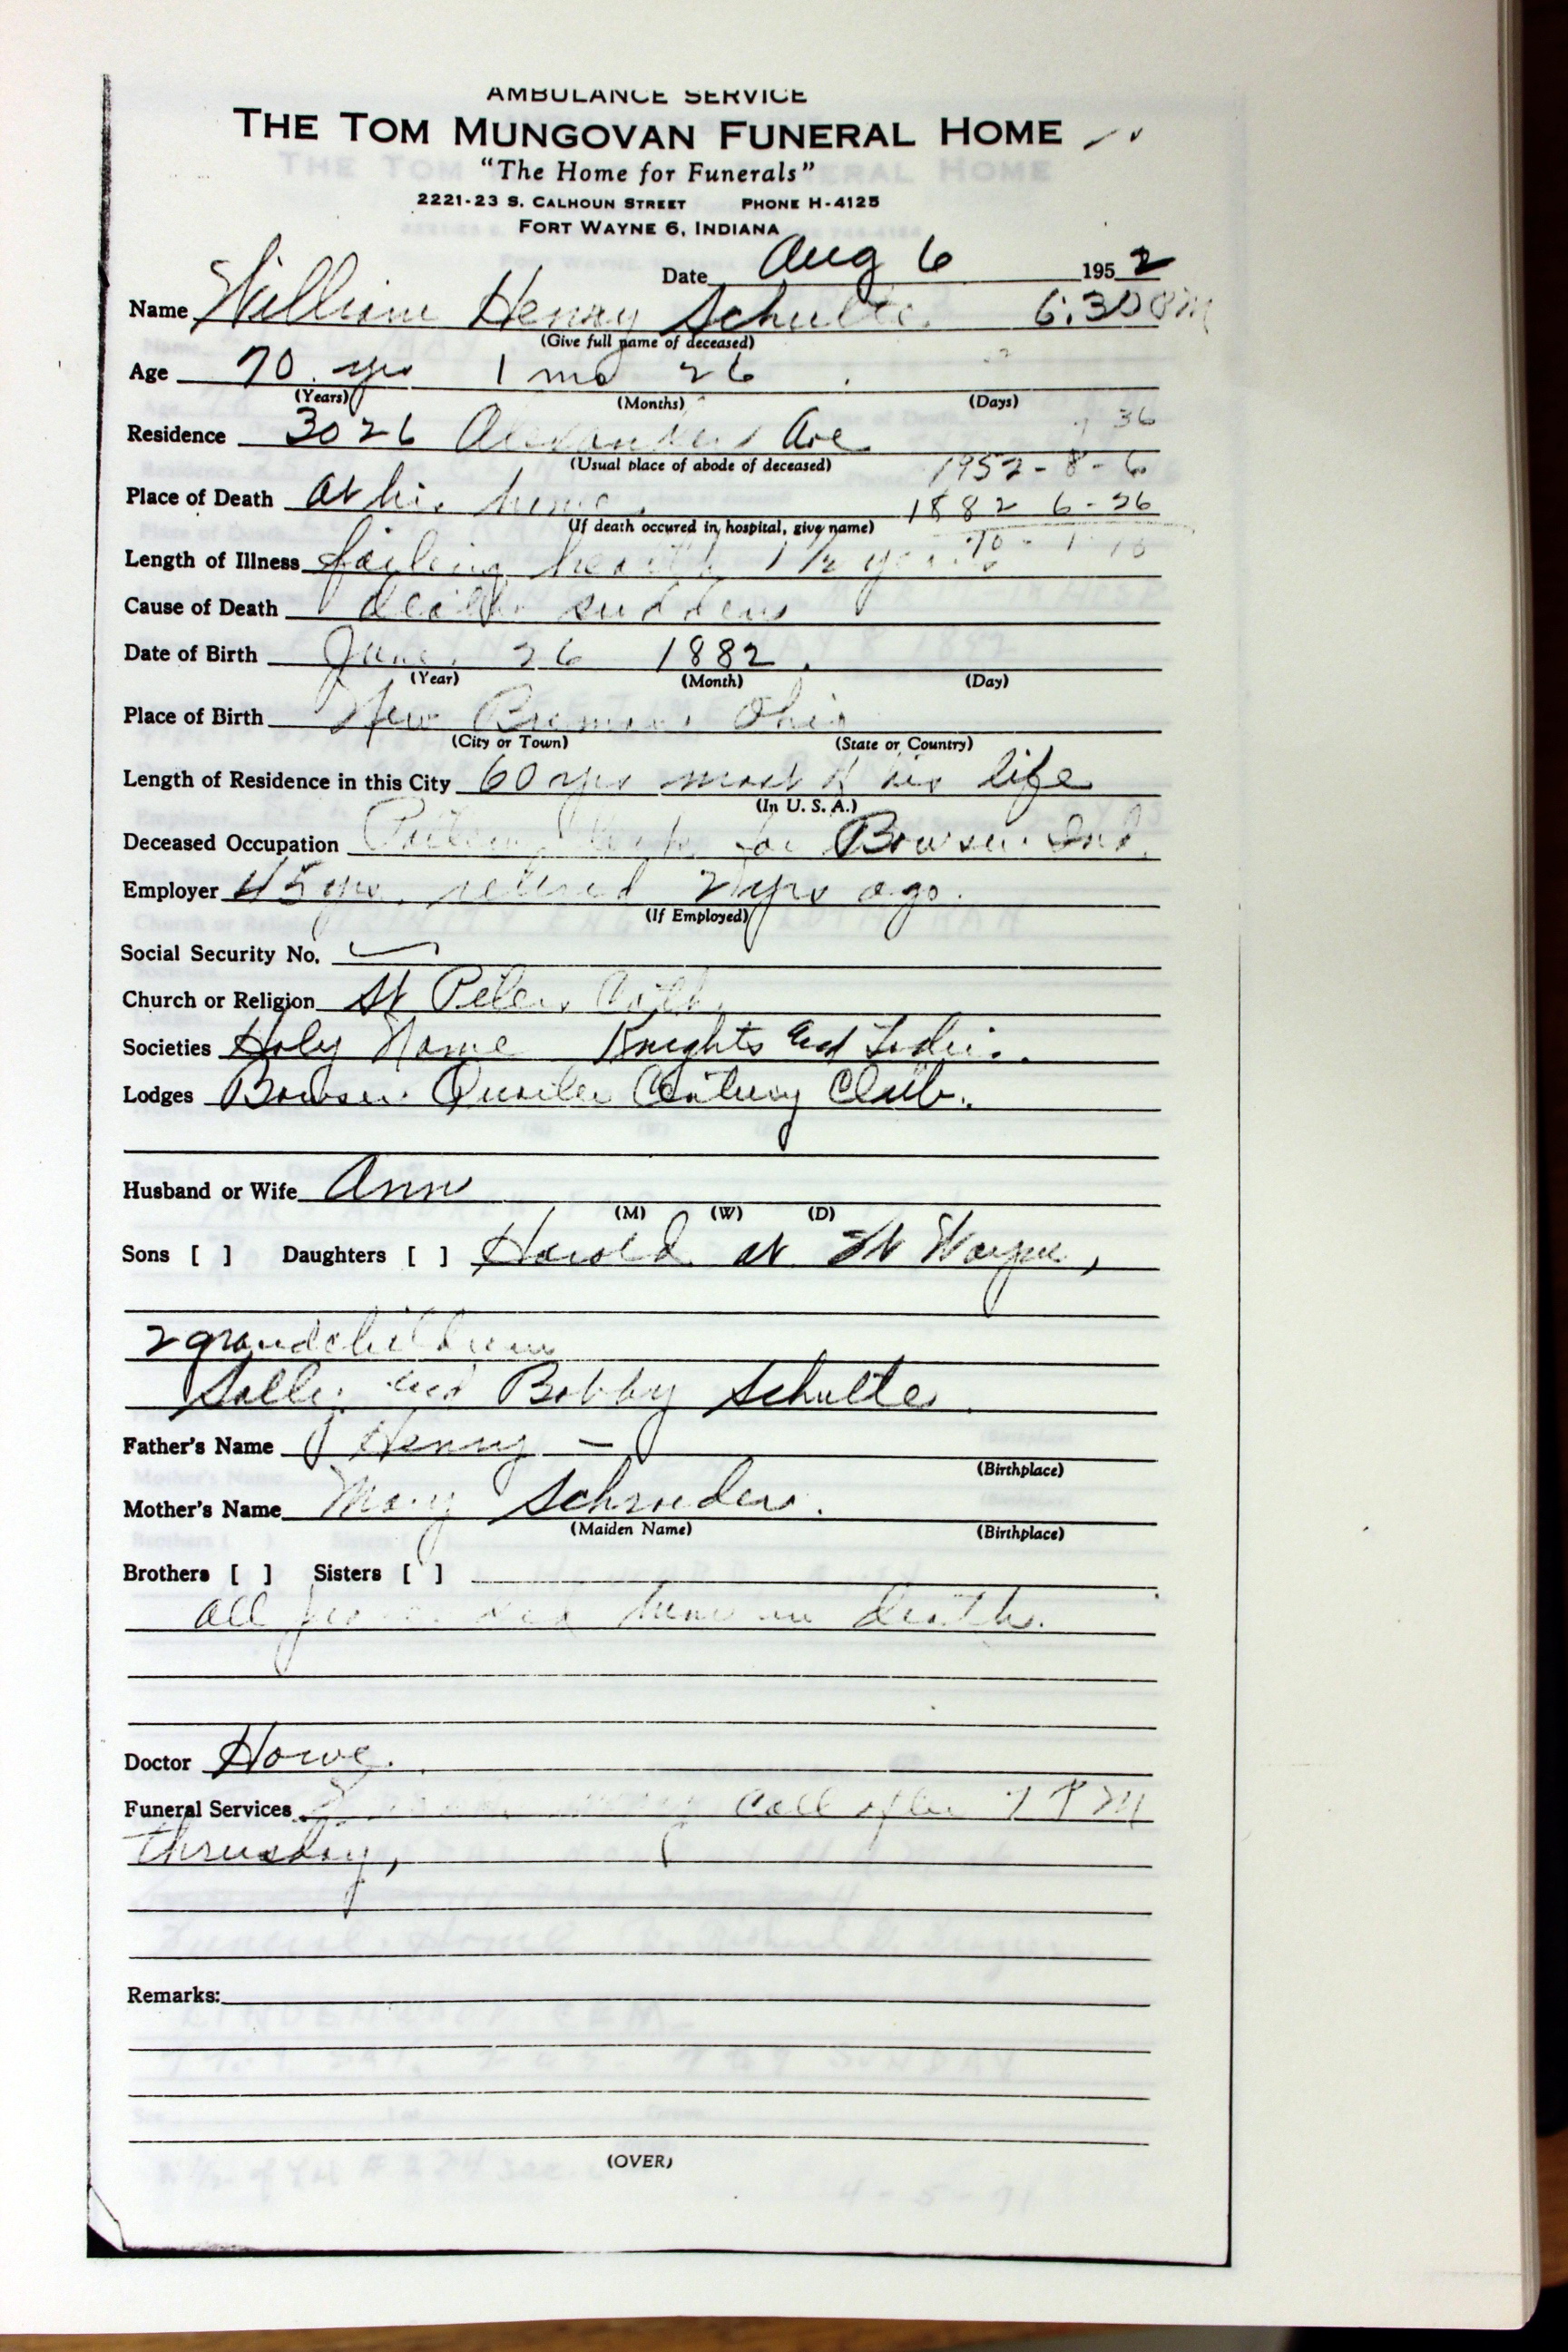 AMBULANCE SERVICE
THE TOM MUNGOVAN FUNERAL HOME
"The Home for Funerals"
2221-23 S. CALHOUN STREET PHONE H-4125
FORT WAYNE 6, INDIANA
Date Aug 6 1952
Name William Henry Schulte. 6:30 PM
(Give full name of deceased)
Age 70 yrs 1 mo 26
(Years) (Months) (Days)
36
Residence 3026 Alexander Ave
(Usual place of abode of deceased)
1952-8-6
Place of Death At his home. 1882 6-26
(If death occured in hospital, give name)
70 - 1 - 10
Length of Illness failing health 1 1/2 years
Cause of Death death sudden
Date of Birth June 26 1882.
(Year) (Month) (Day)
Place of Birth New Bremen, Ohio
(City or Town) (State or Country)
Length of Residence in this City 60 yrs most of his life
(In U. S. A.)
Deceased Occupation for Bowser Ind.
Employer 45 yrs. retired 2 yrs ago.
(If Employed)
Social Security No.
Church or Religion St Peters Cath.
Societies Holy Name Knights and Ladies.
Lodges Bowser Quarter Century Club.
Husband or Wife Ann
(M) (W) (D)
Sons [ ] Daughters [ ] Harold at Ft Wayne,
2 grandchildren
Sally and Bobby Schulte
Father's Name Henry —
(Birthplace)
Mother's Name Mary Schroeder.
(Maiden Name) (Birthplace)
Brothers [ ] Sisters [ ]
all him in death.
Doctor Howe.
Funeral Services Call after 7 PM
Thrusday,
Remarks:
(OVER)